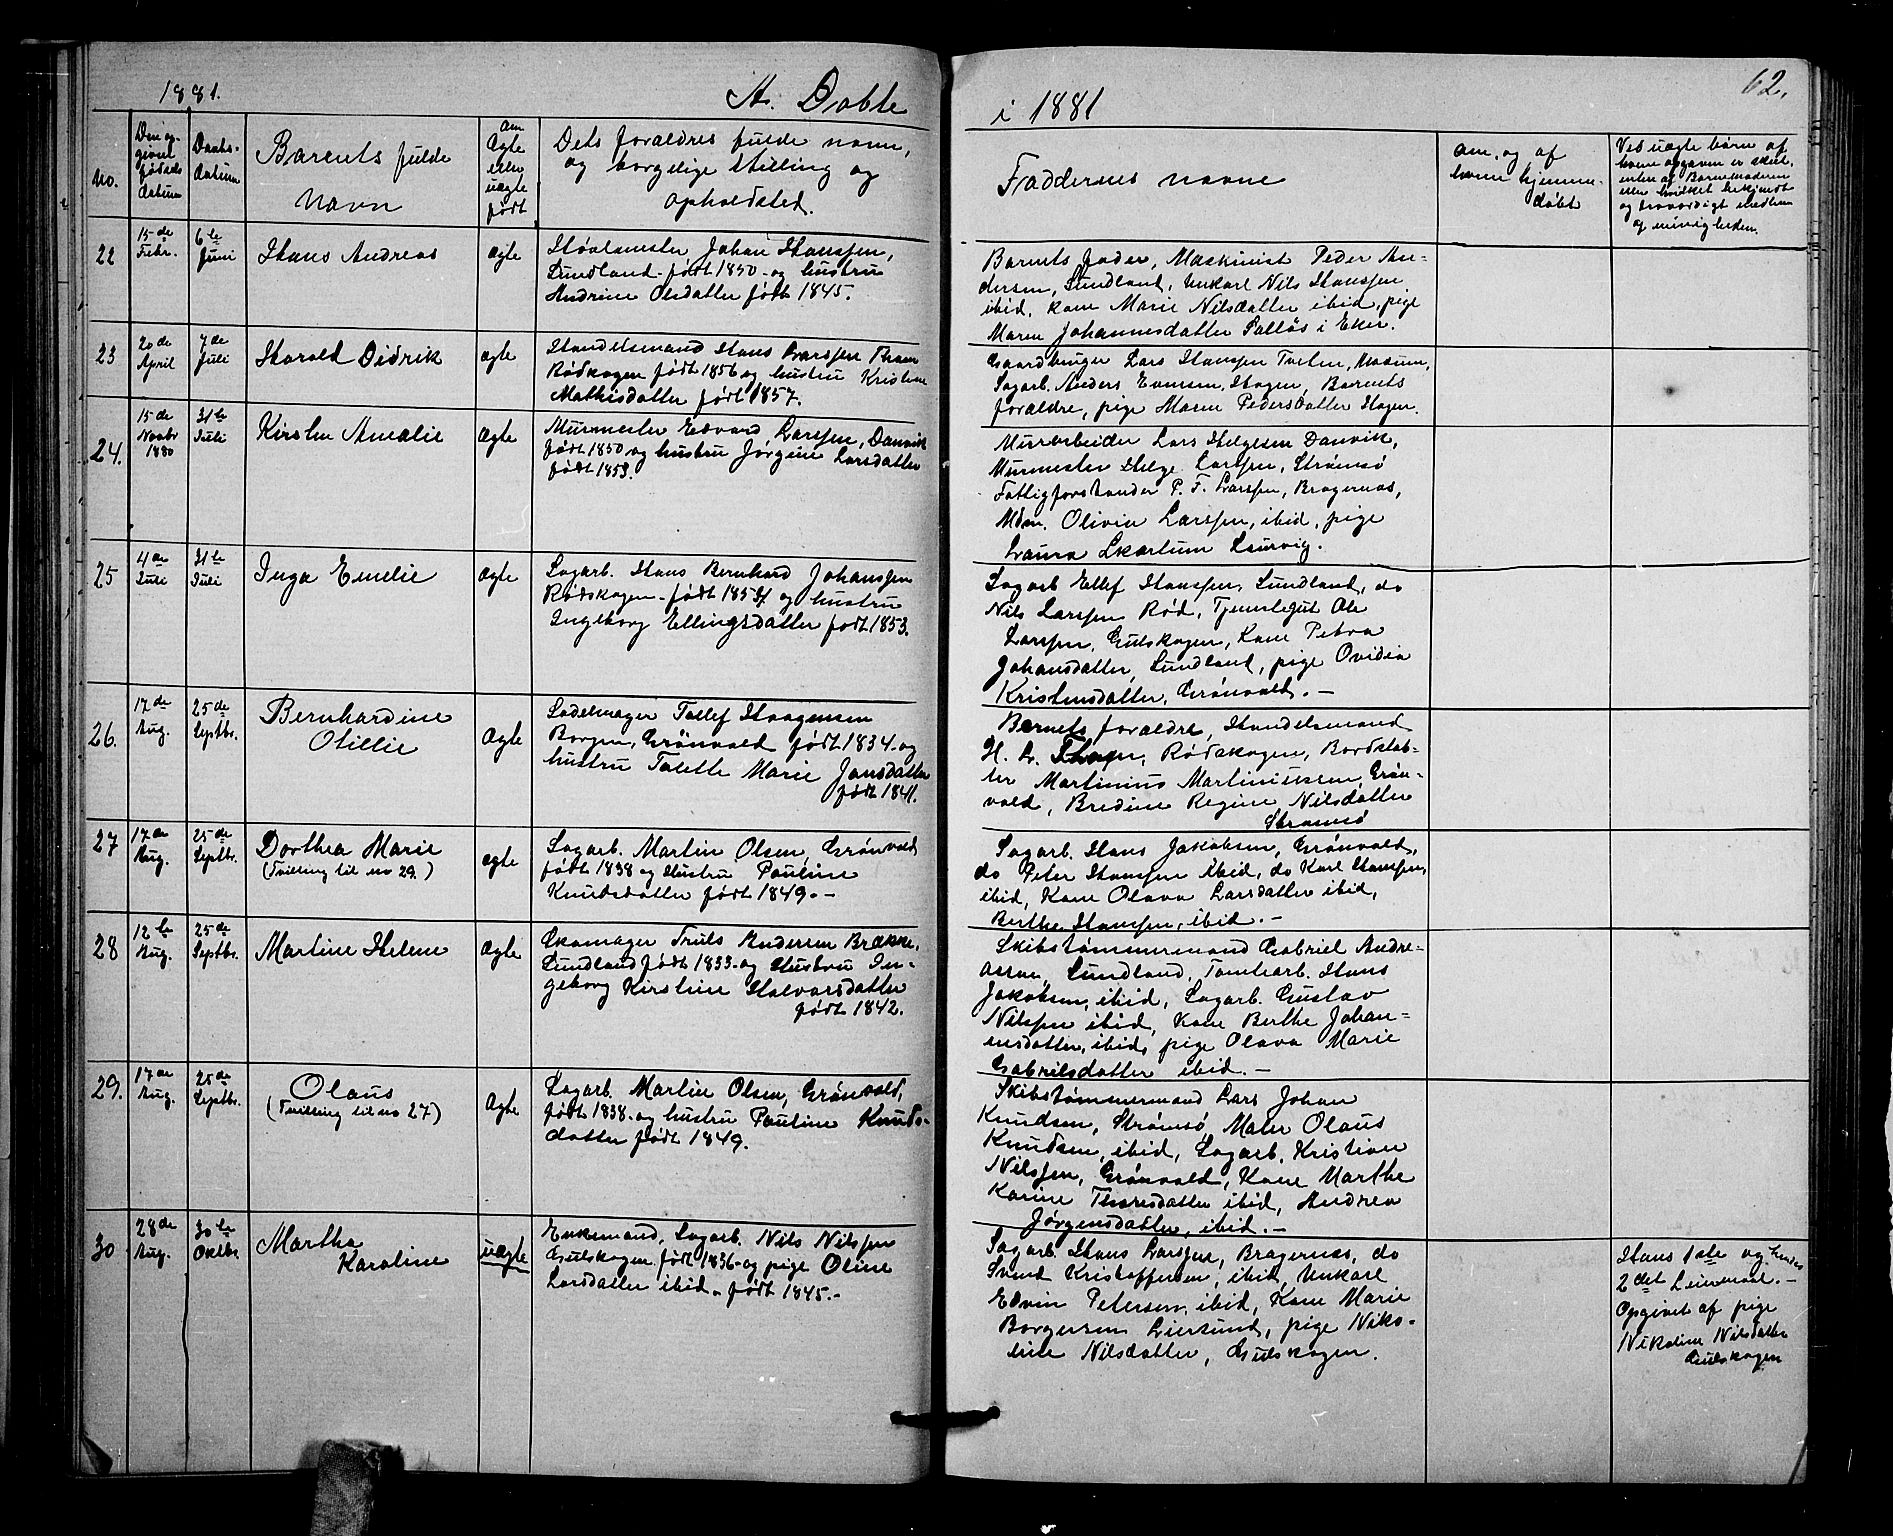 1881.
A. Døbte
i 1881
62.
No.
Den op-
givne
fødsels
Datum
Daabs-
Datum
Barnets fulde
Navn
Om
Ægte
eller
uægte
født
Dets forældres fulde navn,
og borgelige stilling og
opholdsted.
Faddernes navne
Om, og af
hvem hjemme-
døbt
Ved uægte børn af
hvem opgaven er skeet,
enten af Barnemoderen
eller hvilket bekjendt
og troværdigt medlem
af menigheden.
22
15de
Febr.
6te
Juni
Hans Andreas
ægte
Johan Hanssen,
Sundland født 1850 - og hustru
Andrine Olsdatter født 1845.
Barnets fader, Maskinist Peder An-
dersen, Sundland, Unkarl Nils Hanssen
ibid, kone Marie Nilsdatter ibid, pige
Maren Johannesdatter i Eker.
23
20de
April
7de
Juli
Harald Didrik
ægte
Handelsmand Hans Larssen Thom
Rødskogen født 1856 og hustru Kristine
Mathisdatter født 1857.
Gaardbruger Lars Hanssen Tveten, Modum,
Sagarb. Anders Evensen, Hagen, Barnets
forældre, pige Maren Pedersdatter Hagen.
24.
15de
Novbr
1880
31te
Juli
Kirsten Amalie
Ægte
Murmester Edvard Larssen, Danvik
født 1850 og hustru Jørgine Larsdatter
født 1853.
Murarbeider Lars Helgesen Danvik,
Murmester Helge Larssen, Strømsø
Fattigforstander P. F. Larssen, Bragernæs,
Mdm. Olivia Larssen, ibid, pige
Laura Laurvig.
25
4de
Juli
31te
Juli
Inga Emelie
Ægte
Sagarb. Hans Bernhard Johanssen
Rødskogen - født 1854 og hustru
Ingeborg Ellingsdatter født 1853.
Sagarb Ellef Hanssen, Sundland, do
Nils Larssen Rød, Tjenstegut Ole
Larssen, Gulskogen, Kone Petra
Johansdatter, Sundland, pige Ovidia
Kristensdatter, Grønvold. -
26.
17de
Aug.
25de
Septbr.
Bernhardine
Otillie
Ægte
Sadelmager Tollef Haagensen
Borgen, Grønvold født 1834 og
hustru Tolette Marie Jansdatter
født 1841.
Barnets forældre, Handelsmand
H. L. Thom, Rødskogen, Bordstab-
ler Martinius Martiniussen Grøn-
vold, Bredine Regine Nilsdatter
Strømsø
27
17de
Aug.
25de
Septbr.
Dorthea Marie
(Tvilling til no 29.)
ægte
Sagarb. Martin Olsen, Grønvold
født 1838 og Hustru Pauline
Knudsdatter født 1849. -
Sagarb. Hans Jakobsen, Grønvold,
do Peter Hanssen ibid, do Karl Hanssen,
ibid, Kone Olava Larsdatter ibid,
Berthe Hanssen, ibid. -
28
12te
Aug.
25de
Septbr.
Martine Helene
Ægte
Skomager Truls Andersen Brække,
Sundland født 1833 - og Hustru In-
geborg Kirstine Halvorsdatter
født 1842.
Skibstømmermand Gabriel Andre-
assen, Sundland, Tomtearb. Hans
Jakobsen, ibid, Sagarb. Gustav
Nilssen ibid, Kone Berthe Johan-
nesdatter, ibid, pige Olava Marie
Gabrielsdatter ibid. -
29.
17de
Aug.
25de
Septbr.
Olaus
(Tvilling til no 27)
Ægte
Sagarb. Martin Olsen, Grønvold,
født 1838 - og hustru Pauline Knuds-
datter født 1849.
Skibstømmermand Lars Johan
Knudsen, Strømsø, Maler Olaus
Knudsen, ibid, Sagarb. Kristian
Nilssen, Grønvold, Kone Marthe
Karine Thoresdatter ibid, Andrea
Jørgensdatter, ibid. -
30
28de
Aug.
30te
Oktbr.
Martha
Karoline
uægte
Enkemand, Sagarb. Nils Nilssen
Gulskogen født 1836 - og pige Oline
Larsdatter ibid - født 1845. -
Sagarb. Hans Larssen, Bragernæs, do
Svend Kristoffersen, ibid, Unkarl
Edvin Petersen, ibid, Kone Marie
Borgersen Liersund, pige Niko-
line Nilsdatter, Gulskogen.
Hans 1ste og hendes
2det Leiermaal. -
Opgivet af pige
Nikoline Nilsdatter
Gulskogen